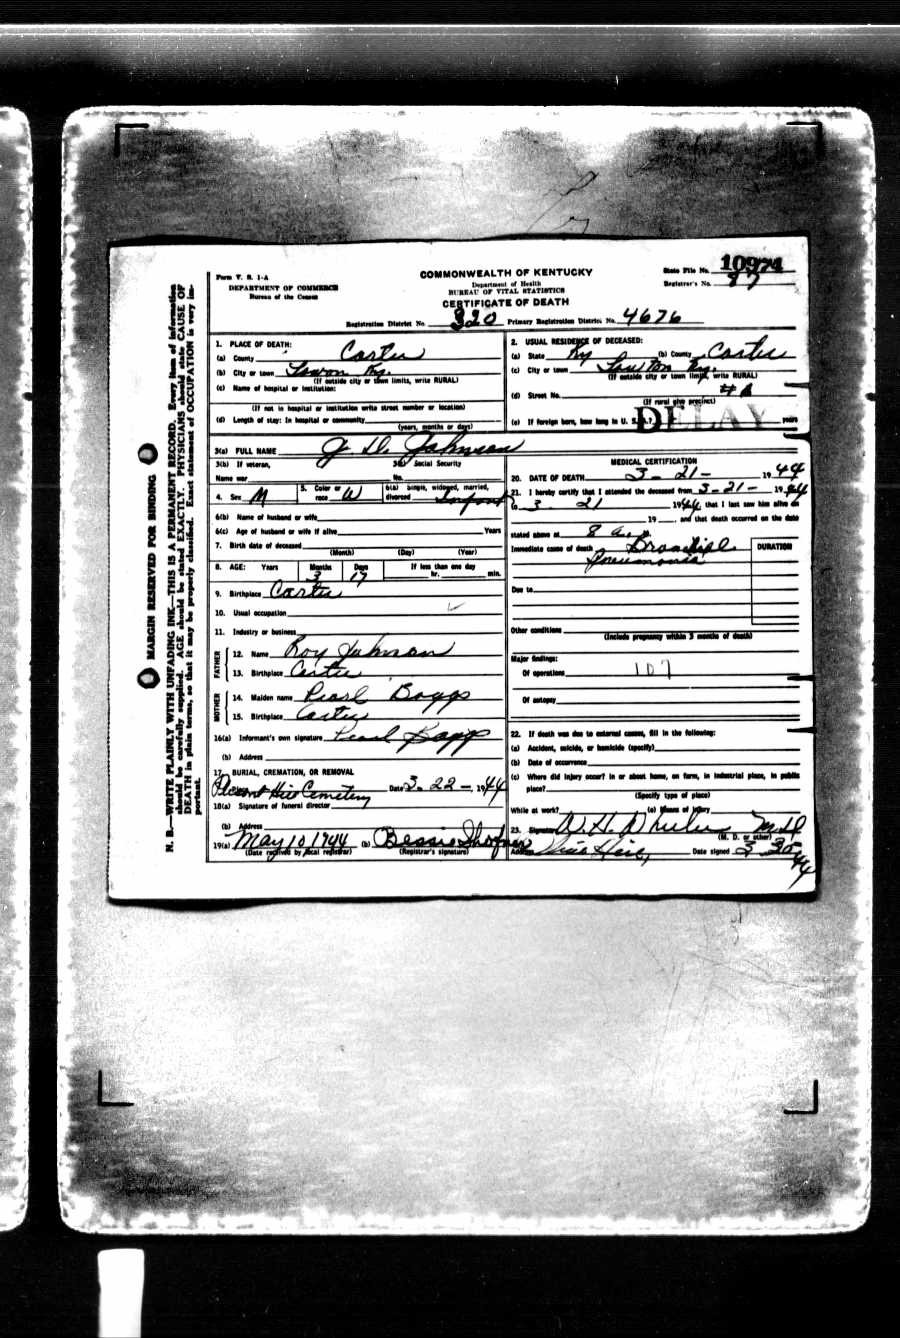 Form V. S. 1-A
DEPARTMENT OF COMMERCE
Bureau of the Census
COMMONWEALTH OF KENTUCKY
Department of Health
BUREAU OF VITAL STATISTICS
CERTIFICATE OF DEATH
State File No. 10974
Registrar's No. 87
Registration District No. 320 Primary Registration District No. 4676
MARGIN RESERVED FOR BINDING
N. B.—WRITE PLAINLY WITH UNFADING INK—THIS IS A PERMANENT RECORD. Every item of information
should be carefully supplied. AGE should be stated EXACTLY. PHYSICIANS should state CAUSE OF
DEATH in plain terms, so that it may be properly classified. Exact statement of OCCUPATION is very im-
portant.
1. PLACE OF DEATH:
(a) County Carter
(b) City or town Lawon Ky.
(If outside city or town limits, write RURAL)
(c) Name of hospital or institution:
(If not in hospital or institution write street number or location)
(d) Length of stay: In hospital or community
(years, months or days)
2. USUAL RESIDENCE OF DECEASED:
(a) State Ky (b) County Carter
(c) City or town Lawton Ky.
(If outside city or town limits, write RURAL)
(d) Street No.
(If rural give precinct)
(e) If foreign born, how long in U. S. A.? years
DELAY
3(a) FULL NAME J. D. Johnson
3(b) If veteran,
Name war
3(c) Social Security
No.
4. Sex M
5. Color or
race W
6(a) Single, widowed, married,
divorced Infant
6(b) Name of husband or wife
6(c) Age of husband or wife if alive Years
7. Birth date of deceased
(Month) (Day) (Year)
8. AGE: Years Months Days If less than one day
3 17 hr. min.
9. Birthplace Carter
10. Usual occupation
11. Industry or business
FATHER
12. Name Roy Johnson
13. Birthplace Carter
MOTHER
14. Maiden name Pearl Boggs
15. Birthplace Carter
16(a) Informant's own signature Pearl Boggs
(b) Address
17. BURIAL, CREMATION, OR REMOVAL
Hill Cemetery Date 3-22-1944
18(a) Signature of funeral director
(b) Address
19(a) May 10 1944 (b) Bessie
(Date received by local registrar) (Registrar's signature)
MEDICAL CERTIFICATION
20. DATE OF DEATH 3-21- 1944
21. I hereby certify that I attended the deceased from 3-21- 1944
to 3 21 1944, that I last saw him alive on
19 , and that death occurred on the date
stated above at 8 a. m.
Immediate cause of death Bronchial
Pneumonia
DURATION
Due to
Other conditions
(Include pregnancy within 3 months of death)
Major findings:
Of operations 107
Of autopsy
22. If death was due to external causes, fill in the following:
(a) Accident, suicide, or homicide (specify)
(b) Date of occurrence
(c) Where did injury occur? In or about home, on farm, in industrial place, in public
place?
(Specify type of place)
While at work? (e) Means of injury
23. Signature W. H. Wheeler M.D
(M. D. or other)
Address Olive Hill, Date signed 3 30 44